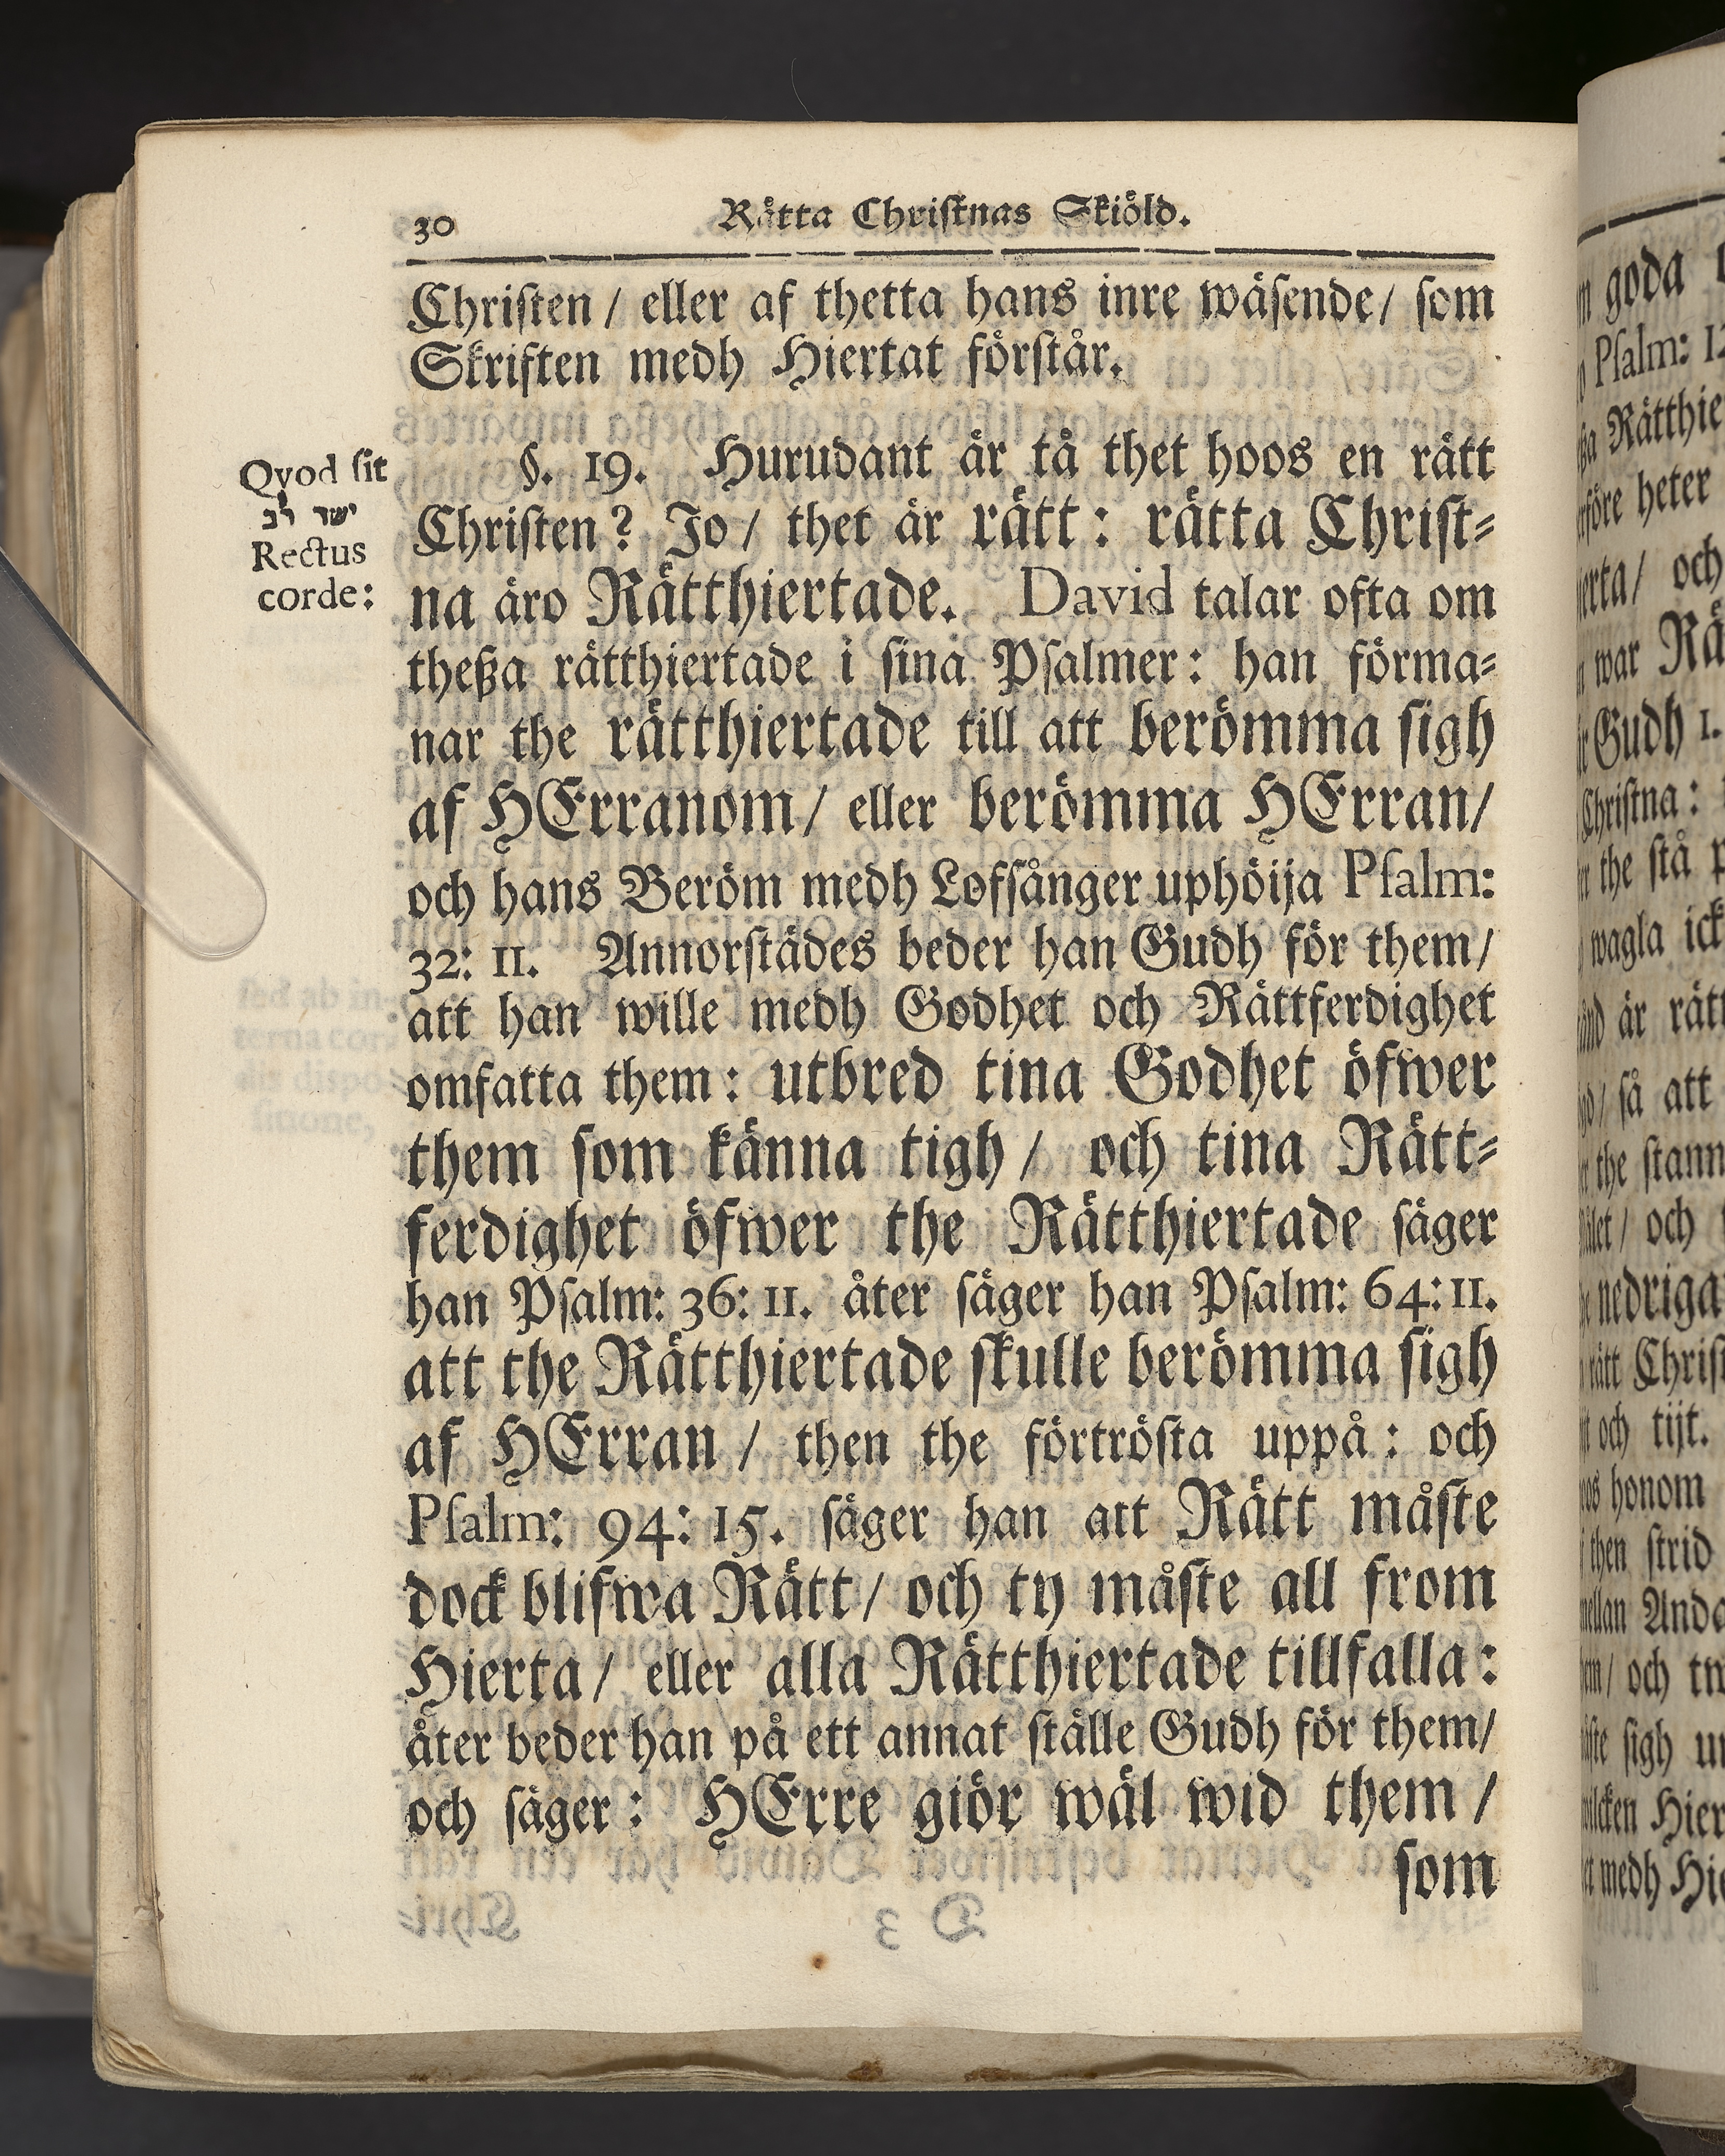 30
Rätta Christnas Skiöld.
Christen / eller af thetta hans inre wäsende / som
Skriften medh Hiertat förstår.
Qvod sit
ישר לב
Rectus
corde:
§. 19. Hurudant är tå thet hoos en rätt
Christen? Jo / thet är rätt: rätta Christ-
na äro Rätthiertade. David talar ofta om
theßa rätthiertade i sina Psalmer: han förma-
nar the rätthiertade till att berömma sigh
af HErranom / eller berömma HErran /
och hans Beröm medh Lofsånger uphöija Psalm:
32: 11. Annorstädes beder han Gudh för them /
att han wille medh Godhet och Rättferdighet
omfatta them: utbred tina Godhet öfwer
them som känna tigh / och tina Rätt-
ferdighet öfwer the Rätthiertade säger
han Psalm: 36: 11. åter säger han Psalm: 64: 11.
att the Rätthiertade skulle berömma sigh
af HErran / then the förtrösta uppå: och
Psalm: 94: 15. säger han att Rätt måste
dock blifwa Rätt / och ty måste all from
Hierta / eller alla Rätthiertade tillfalla:
åter beder han på ett annat ställe Gudh för them /
och säger: HErre giör wäl wid them /
som
goda
Psalm: 12
Rätthie
heter
och
war Rä
Gudh 1.
Christna:
the stå
wagla ick
är rätt
så att
the stann
och
nedriga
Christ
och tijt.
honom
then strid
Ande
och tw
sigh
Hier
medh Hie